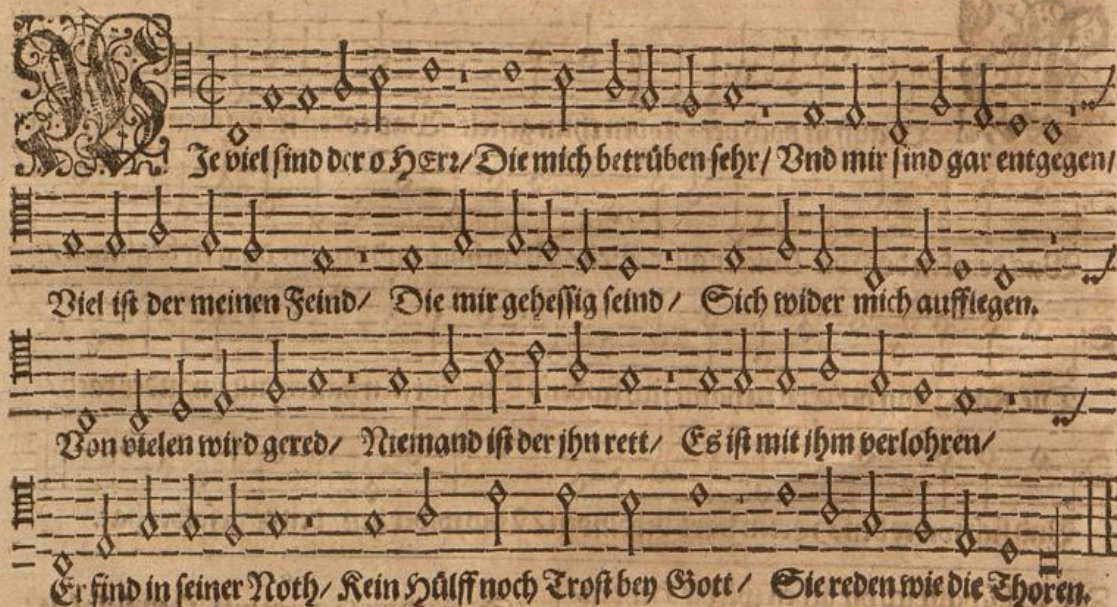 WJe viel sind der o HErr/ Die mich betrüben sehr/ Vnd mir sind gar entgegen/
Viel ist der meinen Feind/ Die mir gehessig seind/ Sich wider mich aufflegen.
Von vielen wird gered/ Niemand ist der jhn rett/ Es ist mit jhm verlohren/
Er find in seiner Noth/ Kein Hülff noch Trost bey Gott/ Sie reden wie die Thoren.